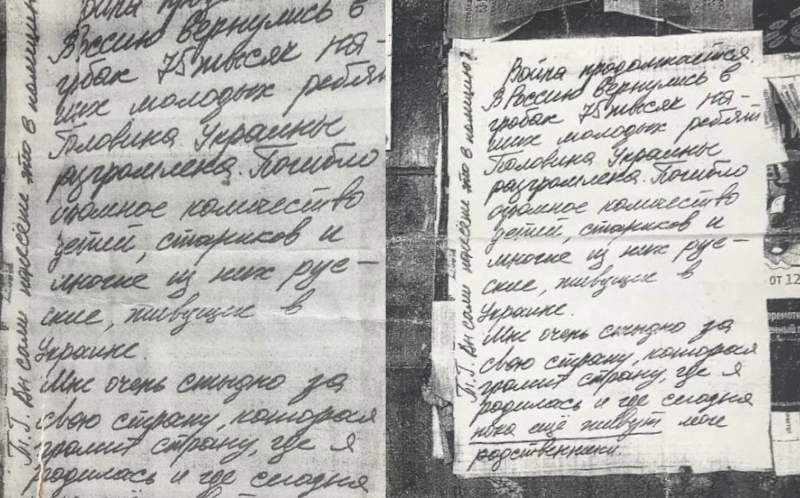 Война
В Россию вернулись в
гробах 75 тысяч на-
ших молодых ребят
Половина Украины
разгромлена. Погибло
огромное количество
детей, стариков и
многие из них рус-
ские, живущие в
Украине.
Мне очень стыдно за
свою страну, которая
громит страну, где я
родилась и где сегодня
Вы сами это в
Война продолжается.
В Россию вернулись в
гробах 75 тысяч на-
ших молодых ребят
Половина Украины
разгромлена. Погибло
огромное количество
детей, стариков и
многие из них рус-
ские, живущие в
Украине.
Мне очень стыдно за
свою страну, которая
громит страну, где я
родилась и где сегодня
пока ещё живут мои
родственники.
Вы сами это в полицию?
от 12